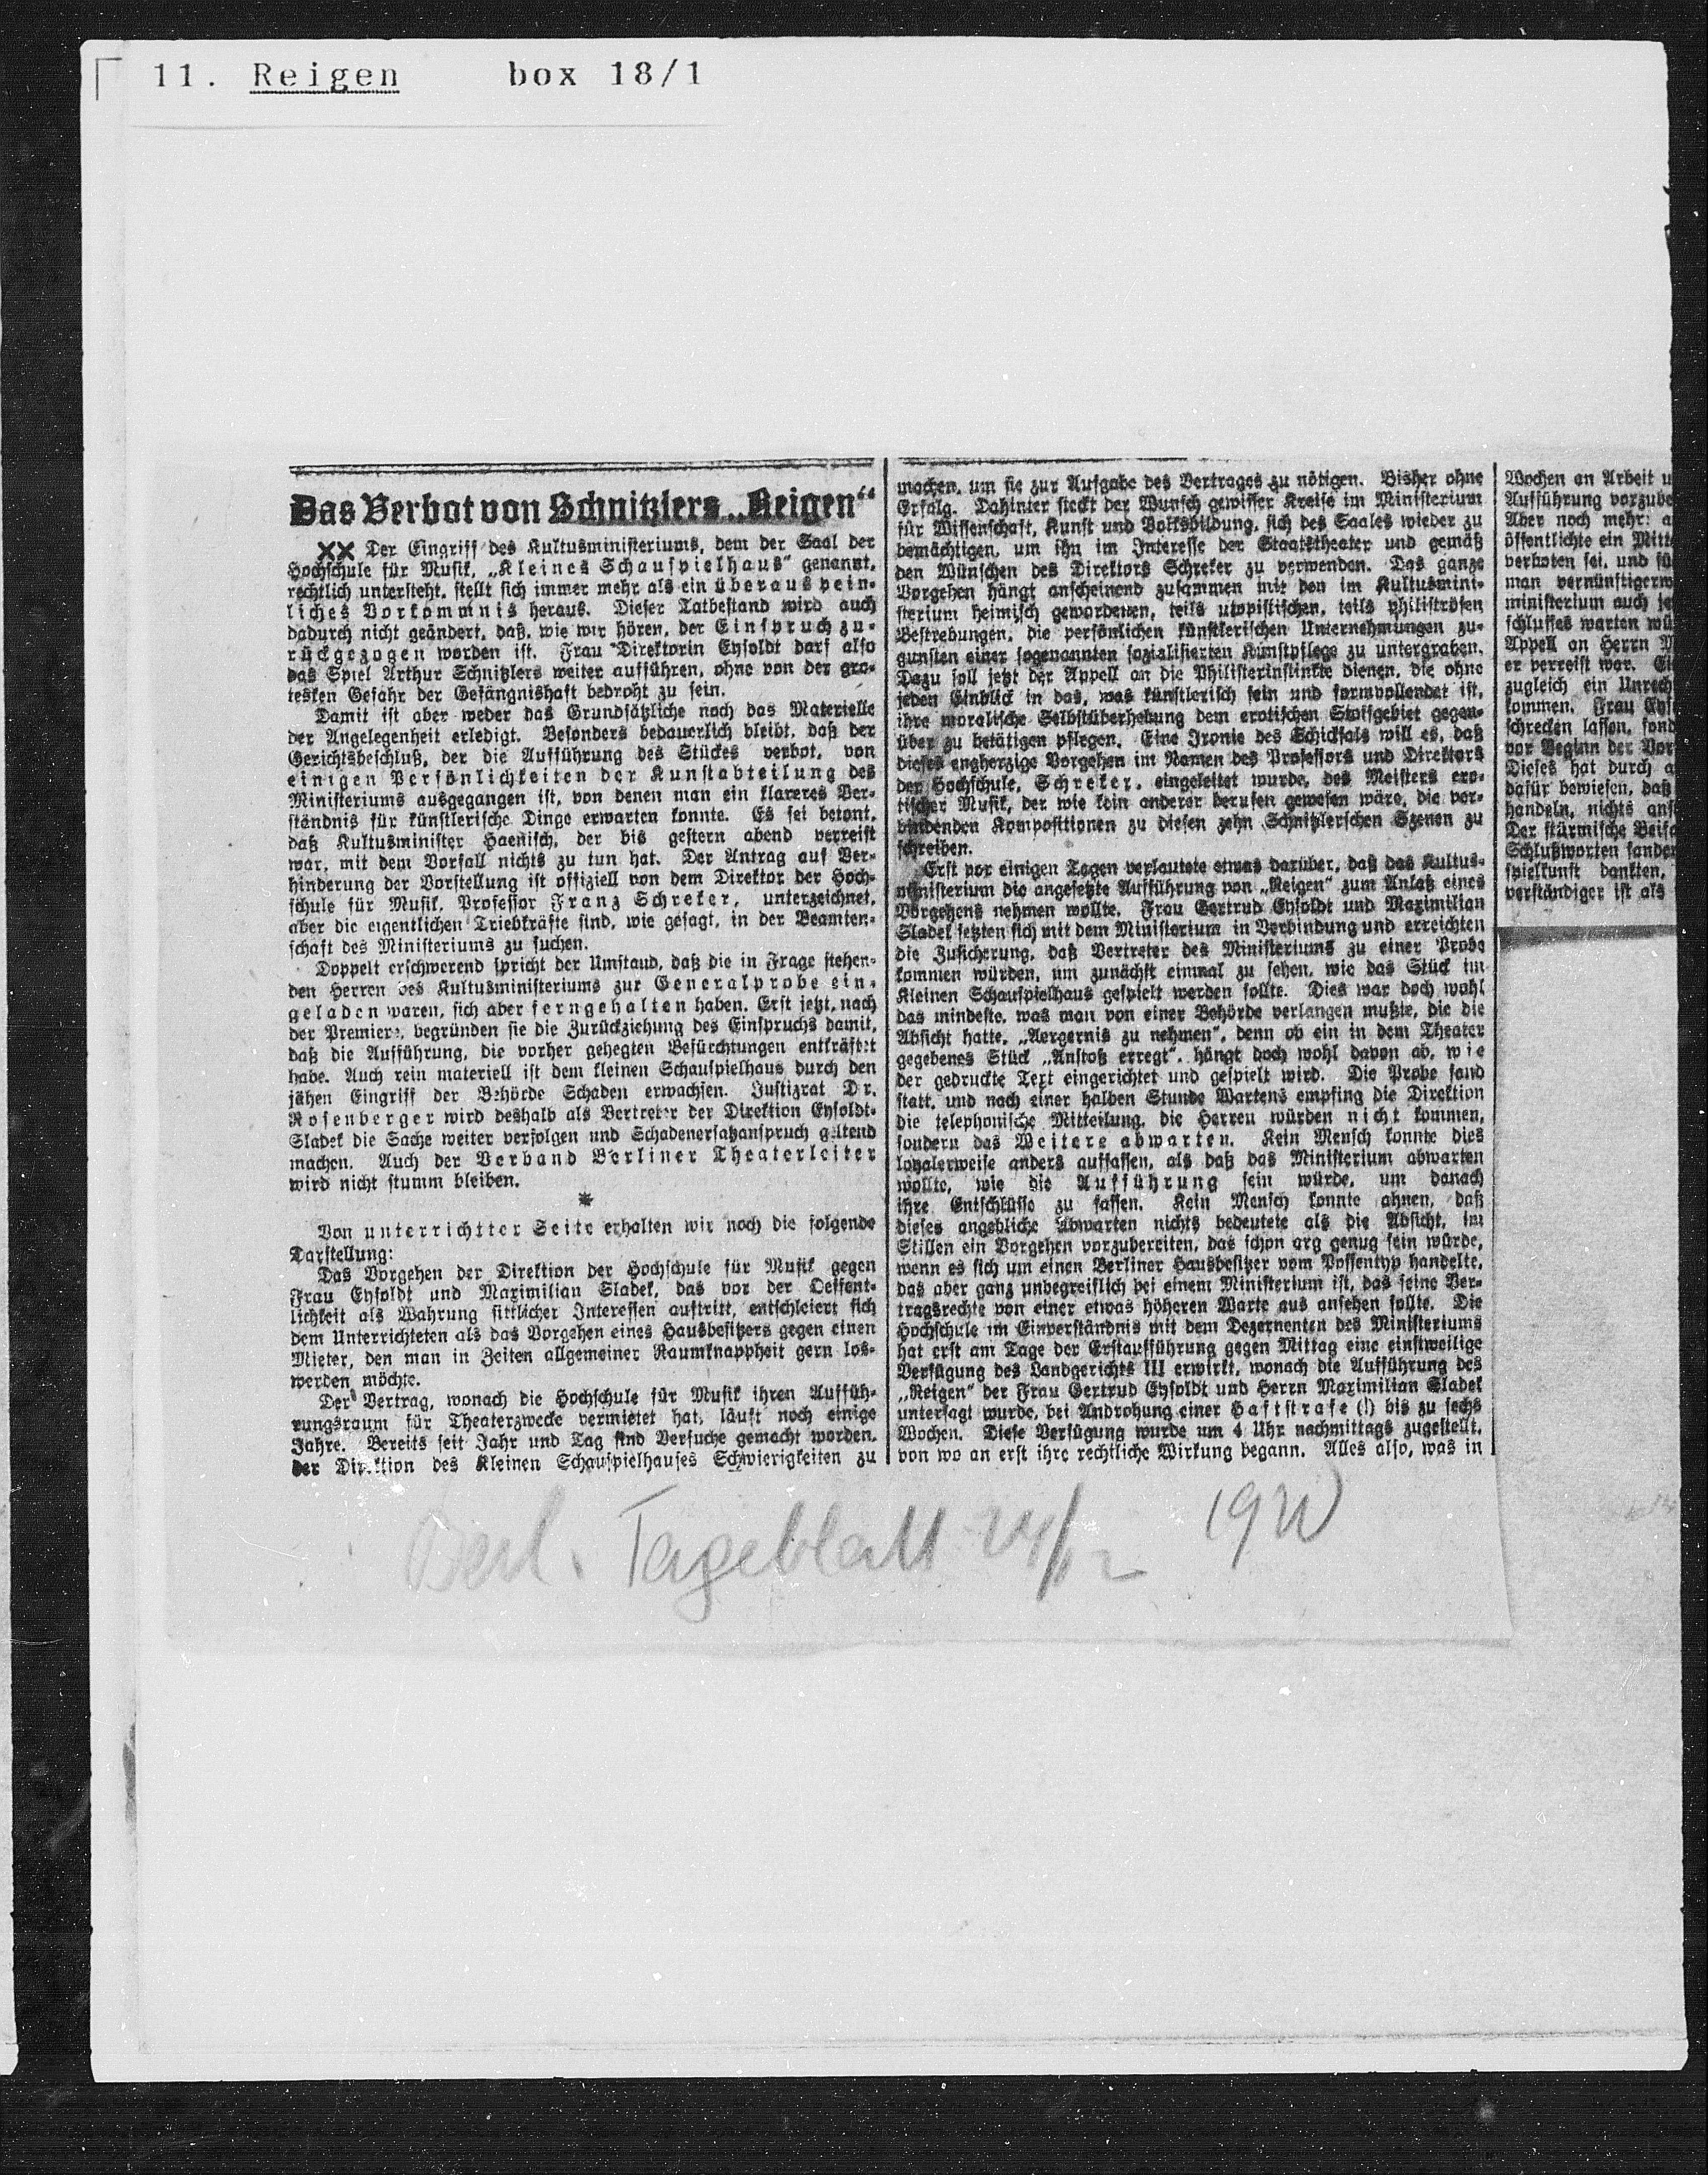 11. Reigen box 18/1
Das Verbot von Schnitzlers „Reigen“
XX Der Eingriff des Kultusministeriums, dem der Saal der
Hochschule für Musik, „Kleines Schauspielhaus“ genannt,
rechtlich untersteht, stellt sich immer mehr als ein überaus pein-
liches Vorkommnis heraus. Dieser Tatbestand wird auch
dadurch nicht geändert, daß, wie wir hören, der Einspruch zu-
rückgezogen worden ist. Frau Direktorin Eysoldt darf also
das Spiel Arthur Schnitzlers weiter aufführen, ohne von der gro-
tesken Gefahr der Gefängnishaft bedroht zu sein.
Damit ist aber weder das Grundsätzliche noch das Materielle
der Angelegenheit erledigt. Besonders bedauerlich bleibt, daß der
Gerichtsbeschluß, der die Aufführung des Stückes verbot, von
einigen Persönlichkeiten der Kunstabteilung des
Ministeriums ausgegangen ist, von denen man ein klareres Ver-
ständnis für künstlerische Dinge erwarten konnte. Es sei betont,
daß Kultusminister Haenisch, der bis gestern abend verreist
war, mit dem Vorfall nichts zu tun hat. Der Antrag auf Ver-
hinderung der Vorstellung ist offiziell von dem Direktor der Hoch-
schule für Musik, Professor Franz Schreker, unterzeichnet,
aber die eigentlichen Triebkräfte sind, wie gesagt, in der Beamten-
schaft des Ministeriums zu suchen.
Doppelt erschwerend spricht der Umstand, daß die in Frage stehen-
den Herren des Kultusministeriums zur Generalprobe ein-
geladen waren, sich aber ferngehalten haben. Erst jetzt, nach
der Premiere, begründen sie die Zurückziehung des Einspruchs damit,
daß die Aufführung, die vorher gehegten Befürchtungen entkräftet
habe. Auch rein materiell ist dem kleinen Schauspielhaus durch den
jähen Eingriff der Behörde Schaden erwachsen. Justizrat Dr.
Rosenberger wird deshalb als Vertreter der Direktion Eysoldt-
Sladek die Sache weiter verfolgen und Schadenersatzanspruch geltend
machen. Auch der Verband Berliner Theaterleiter
wird nicht stumm bleiben.
*
Von unterrichtter Seite erhalten wir noch die folgende
Darstellung:
Das Vorgehen der Direktion der Hochschule für Musik gegen
Frau Eysoldt und Maximilian Sladek, das vor der Oeffent-
lichkeit als Wahrung sittlicher Interessen auftritt, entschleiert sich
dem Unterrichteten als das Vorgehen eines Hausbesitzers gegen einen
Mieter, den man in Zeiten allgemeiner Raumknappheit gern los-
werden möchte.
Der Vertrag, wonach die Hochschule für Musik ihren Auffüh-
rungsraum für Theaterzwecke vermietet hat, läuft noch einige
Jahre. Bereits seit Jahr und Tag sind Versuche gemacht worden,
der Direktion des Kleinen Schauspielhauses Schwierigkeiten zu
machen, um sie zur Aufgabe des Vertrages zu nötigen. Bisher ohne
Erfolg. Dahinter steckt der Wunsch gewisser Kreise im Ministerium
für Wissenschaft, Kunst und Volksbildung, sich des Saales wieder zu
bemächtigen, um ihn im Interesse der Staatstheater und gemäß
den Wünschen des Direktors Schreker zu verwenden. Das ganze
Vorgehen hängt anscheinend zusammen mit den im Kultusmini-
sterium heimisch gewordenen, teils utopistischen, teils philiströsen
Bestrebungen, die persönlichen künstlerischen Unternehmungen zu-
gunsten einer sogenannten sozialisierten Kunstpflege zu untergraben.
Dazu soll jetzt der Appell an die Philisterinstinkte dienen, die ohne
jeden Einblick in das, was künstlerisch fein und formvollendet ist,
ihre moralische Selbstüberhebung dem erotischen Stoffgebiet gegen-
über zu betätigen pflegen. Eine Ironie des Schicksals will es, daß
dieses engherzige Vorgehen im Namen des Professors und Direktors
der Hochschule, Schreker, eingeleitet wurde, des Meisters ero-
tischer Musik, der wie kein anderer berufen gewesen wäre, die ver-
bindenden Kompositionen zu diesen zehn Schnitzlerschen Szenen zu
schreiben.
Erst vor einigen Tagen verlautete etwas darüber, daß das Kultus-
ministerium die angesetzte Aufführung von „Reigen“ zum Anlaß eines
Vorgehens nehmen wollte. Frau Gertrud Eysoldt und Maximilian
Sladek setzten sich mit dem Ministerium in Verbindung und erreichten
die Zusicherung, daß Vertreter des Ministeriums zu einer Probe
kommen würden, um zunächst einmal zu sehen, wie das Stück im
Kleinen Schauspielhaus gespielt werden sollte. Dies war doch wohl
das mindeste, was man von einer Behörde verlangen mußte, die die
Absicht hatte, „Aergernis zu nehmen“, denn ob ein in dem Theater
gegebenes Stück „Anstoß erregt“, hängt doch wohl davon ab, wie
der gedruckte Text eingerichtet und gespielt wird. Die Probe fand
statt, und nach einer halben Stunde Wartens empfing die Direktion
die telephonische Mitteilung, die Herren würden nicht kommen,
sondern das Weitere abwarten. Kein Mensch konnte dies
loyalerweise anders auffassen, als daß das Ministerium abwarten
wollte, wie die Aufführung sein würde, um danach
ihre Entschlüsse zu fassen. Kein Mensch konnte ahnen, daß
dieses angebliche Abwarten nichts bedeutete als die Absicht, im
Stillen ein Vorgehen vorzubereiten, das schon arg genug sein würde,
wenn es sich um einen Berliner Hausbesitzer vom Possentyp handelte,
das aber ganz unbegreiflich bei einem Ministerium ist, das seine Ver-
tragsrechte von einer etwas höheren Warte aus ansehen sollte. Die
Hochschule im Einverständnis mit dem Dezernenten des Ministeriums
hat erst am Tage der Erstaufführung gegen Mittag eine einstweilige
Verfügung des Landgerichts III erwirkt, wonach die Aufführung des
„Reigen“ der Frau Gertrud Eysoldt und Herrn Maximilian Sladek
untersagt wurde, bei Androhung einer Haftstrafe (!) bis zu sechs
Wochen. Diese Verfügung wurde um 4 Uhr nachmittags zugestellt,
von wo an erst ihre rechtliche Wirkung begann. Alles also, was in
Wochen an Arbeit u
Aufführung vorzube
Aber noch mehr: a
öffentlichte ein Mitt
verboten sei, und fü
man vernünftigerw
ministerium auch je
schlusses warten wü
Appell an Herrn M
er verreist war. Ei
zugleich ein Unrech
kommen. Frau Eys
schrecken lassen, sond
vor Beginn der Vor
Dieses hat durch a
dafür bewiesen, daß
handeln, nichts anst
Der stürmische Beifa
Schlußworten sander
spielkunst dankten,
verständiger ist als
Berl. Tageblatt 24/12 1920